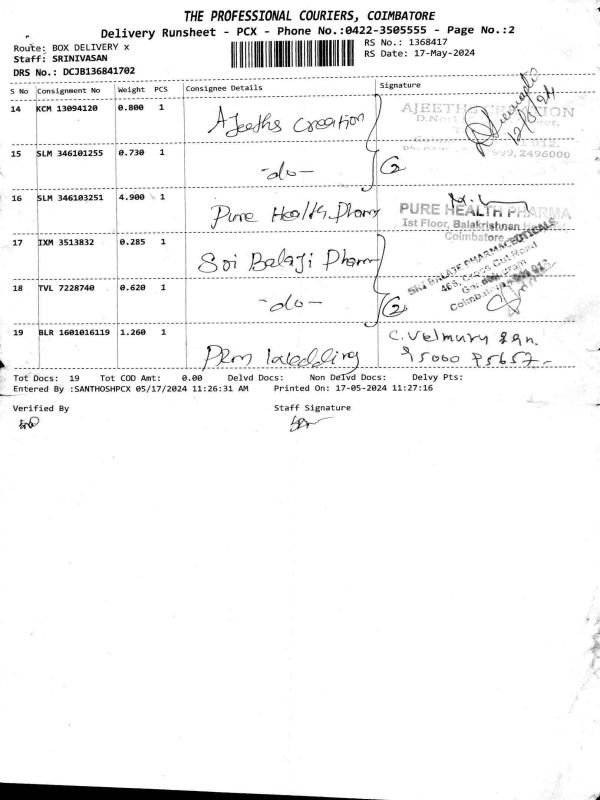 THE PROFESSIONAL COURIERS, COIMBATORE
Delivery Runsheet - PCX - Phone No.:0422-3505555 - Page No.:2
Route: BOX DELIVERY x
RS No.: 1368417
Staff: SRINIVASAN
RS Date: 17-May-2024
DRS No.: DCJB136841702
S No Consignment No Weight PCS Consignee Details Signature
14 KCM 13094120 0.800 1 Ajeeths Creation
AJEETHS CREATION
15 SLM 346101255 0.730 1 -do- 2
999, 2496000
16 SLM 346103251 4.900 1 Pure Health Pharm
PURE HEALTH PHARMA
Ist Floor, Balakrishnan
Coimbatore
17 IXM 3513832 0.285 1 Sri Balaji Pharm
SRI BALAJI PHARMACEUTICALS
Coimbatore
18 TVL 7228740 0.620 1 -do- 2
19 BLR 1601016119 1.260 1
C. Velmurugan.
Tot Docs: 19 Tot COD Amt: 0.00 Delvd Docs: Non Delvd Docs: Delvy Pts:
Entered By :SANTHOSHPCX 05/17/2024 11:26:31 AM Printed On: 17-05-2024 11:27:16
Verified By Staff Signature